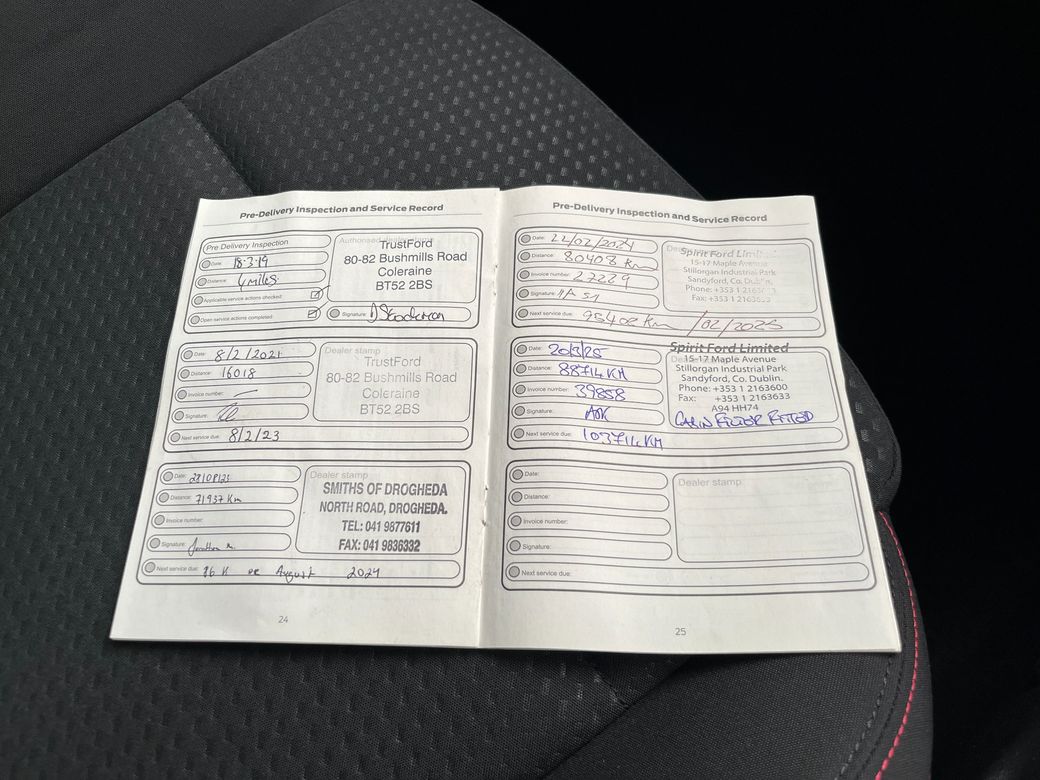 Pre-Delivery Inspection and Service Record
Pre Delivery Inspection
Date: 18·3·19
Distance: 4 miles
Applicable service actions checked:
Open service actions completed:
Authorised
TrustFord
80-82 Bushmills Road
Coleraine
BT52 2BS
Signature:
Date: 8/2/2021
Distance: 16018
Invoice number:
Signature:
Next service due: 8/2/23
Dealer stamp
TrustFord
80-82 Bushmills Road
Coleraine
BT52 2BS
Date: 28/08/23
Distance: 71937 Km
Invoice number:
Signature:
Next service due: 86 K or August 2024
Dealer stamp
SMITHS OF DROGHEDA
NORTH ROAD, DROGHEDA.
TEL: 041 9877611
FAX: 041 9836332
24
Pre-Delivery Inspection and Service Record
Date: 22/02/2024
Distance: 80408 Km
Invoice number: 22229
Signature:
Next service due: 95408 Km /02/2025
Spirit Ford Limited
15-17 Maple Avenue
Stillorgan Industrial Park
Sandyford, Co. Dublin.
Phone: +353 1
Fax: +353 1
Date: 20/3/25
Distance: 88714 KM
Invoice number: 39858
Signature:
Next service due: 103714 KM
Spirit Ford Limited
15-17 Maple Avenue
Stillorgan Industrial Park
Sandyford, Co. Dublin.
Phone: +353 1 2163600
Fax: +353 1 2163633
A94 HH74
CABIN FILTER FITTED
Date:
Distance:
Invoice number:
Signature:
Next service due:
Dealer stamp
25